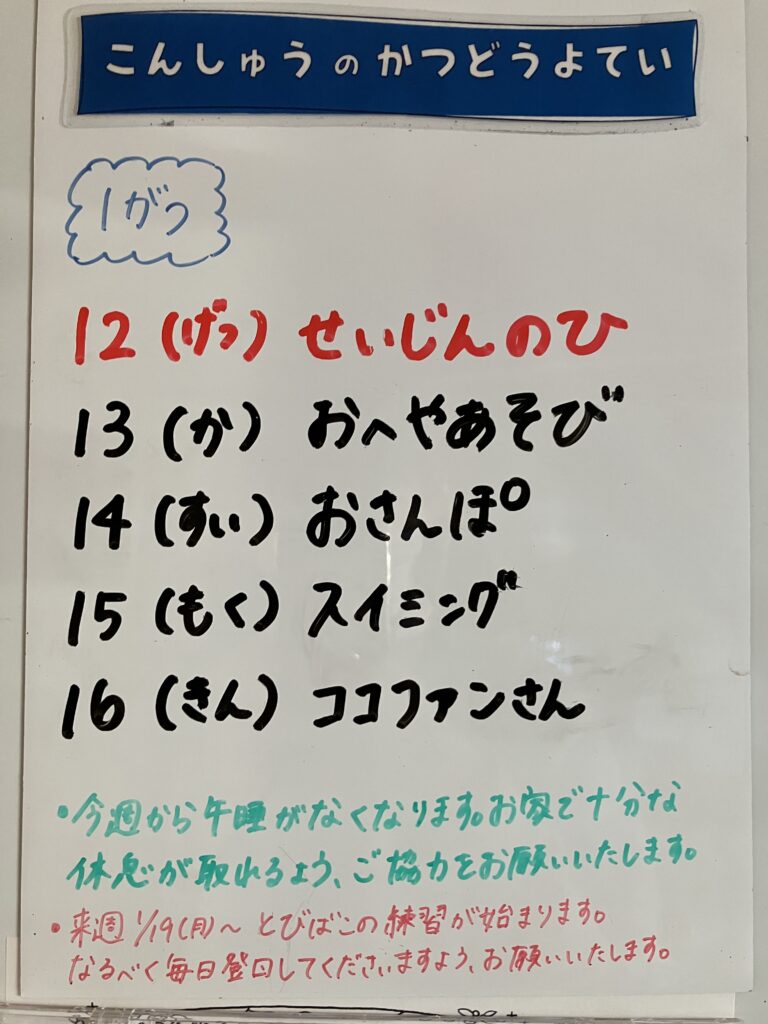 こんしゅうのかつどうよてい
1がつ
12(げつ) せいじんのひ
13(か) おへやあそび
14(すい) おさんぽ
15(もく) スイミング
16(きん) ココファンさん
・今週から午睡がなくなります。お家で十分な
休息が取れるよう、ご協力をお願いいたします。
・来週1/19(月)〜とびばこの練習が始まります。
なるべく毎日登口してくださいますよう、お願いいたします。